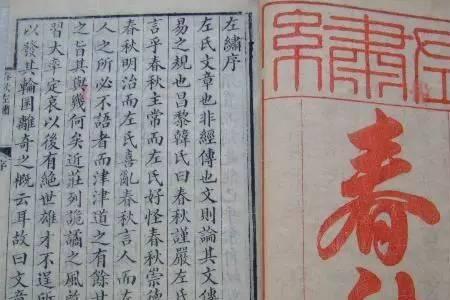 左
繡
春秋
左繡序
左氏文章也非經傳也文則論其文
易之規也昌黎韓氏曰春秋謹嚴左
言乎春秋主常而左氏好怪春秋崇德
春秋明治而左氏喜亂春秋言人而左
人之所必不語者而津津道之有餘甘
之旨其與幾何矣近莊列詭譎之風
習大率定哀以後有絕世雄才不逞所
以發其輪囷離奇之概云耳故曰文章
春秋左繡
序